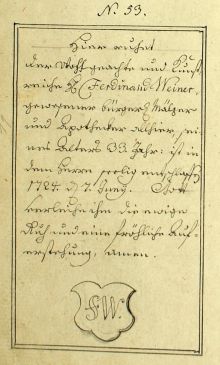 N. 53.
Hier ruhet
der Wohl geachte und Kunst
reiche H: Ferdinand Weiner
gewesener bürger, Mälzer
und Apothecker alhier, sei-
nes Alters 33. Jahr: ist in
dem Herrn seelig entschlaffen
1724. d 7. Juny. Gott
verleihe ihm die ewige
Ruh und eine fröhliche Auf-
erstehung, Amen.
FW.